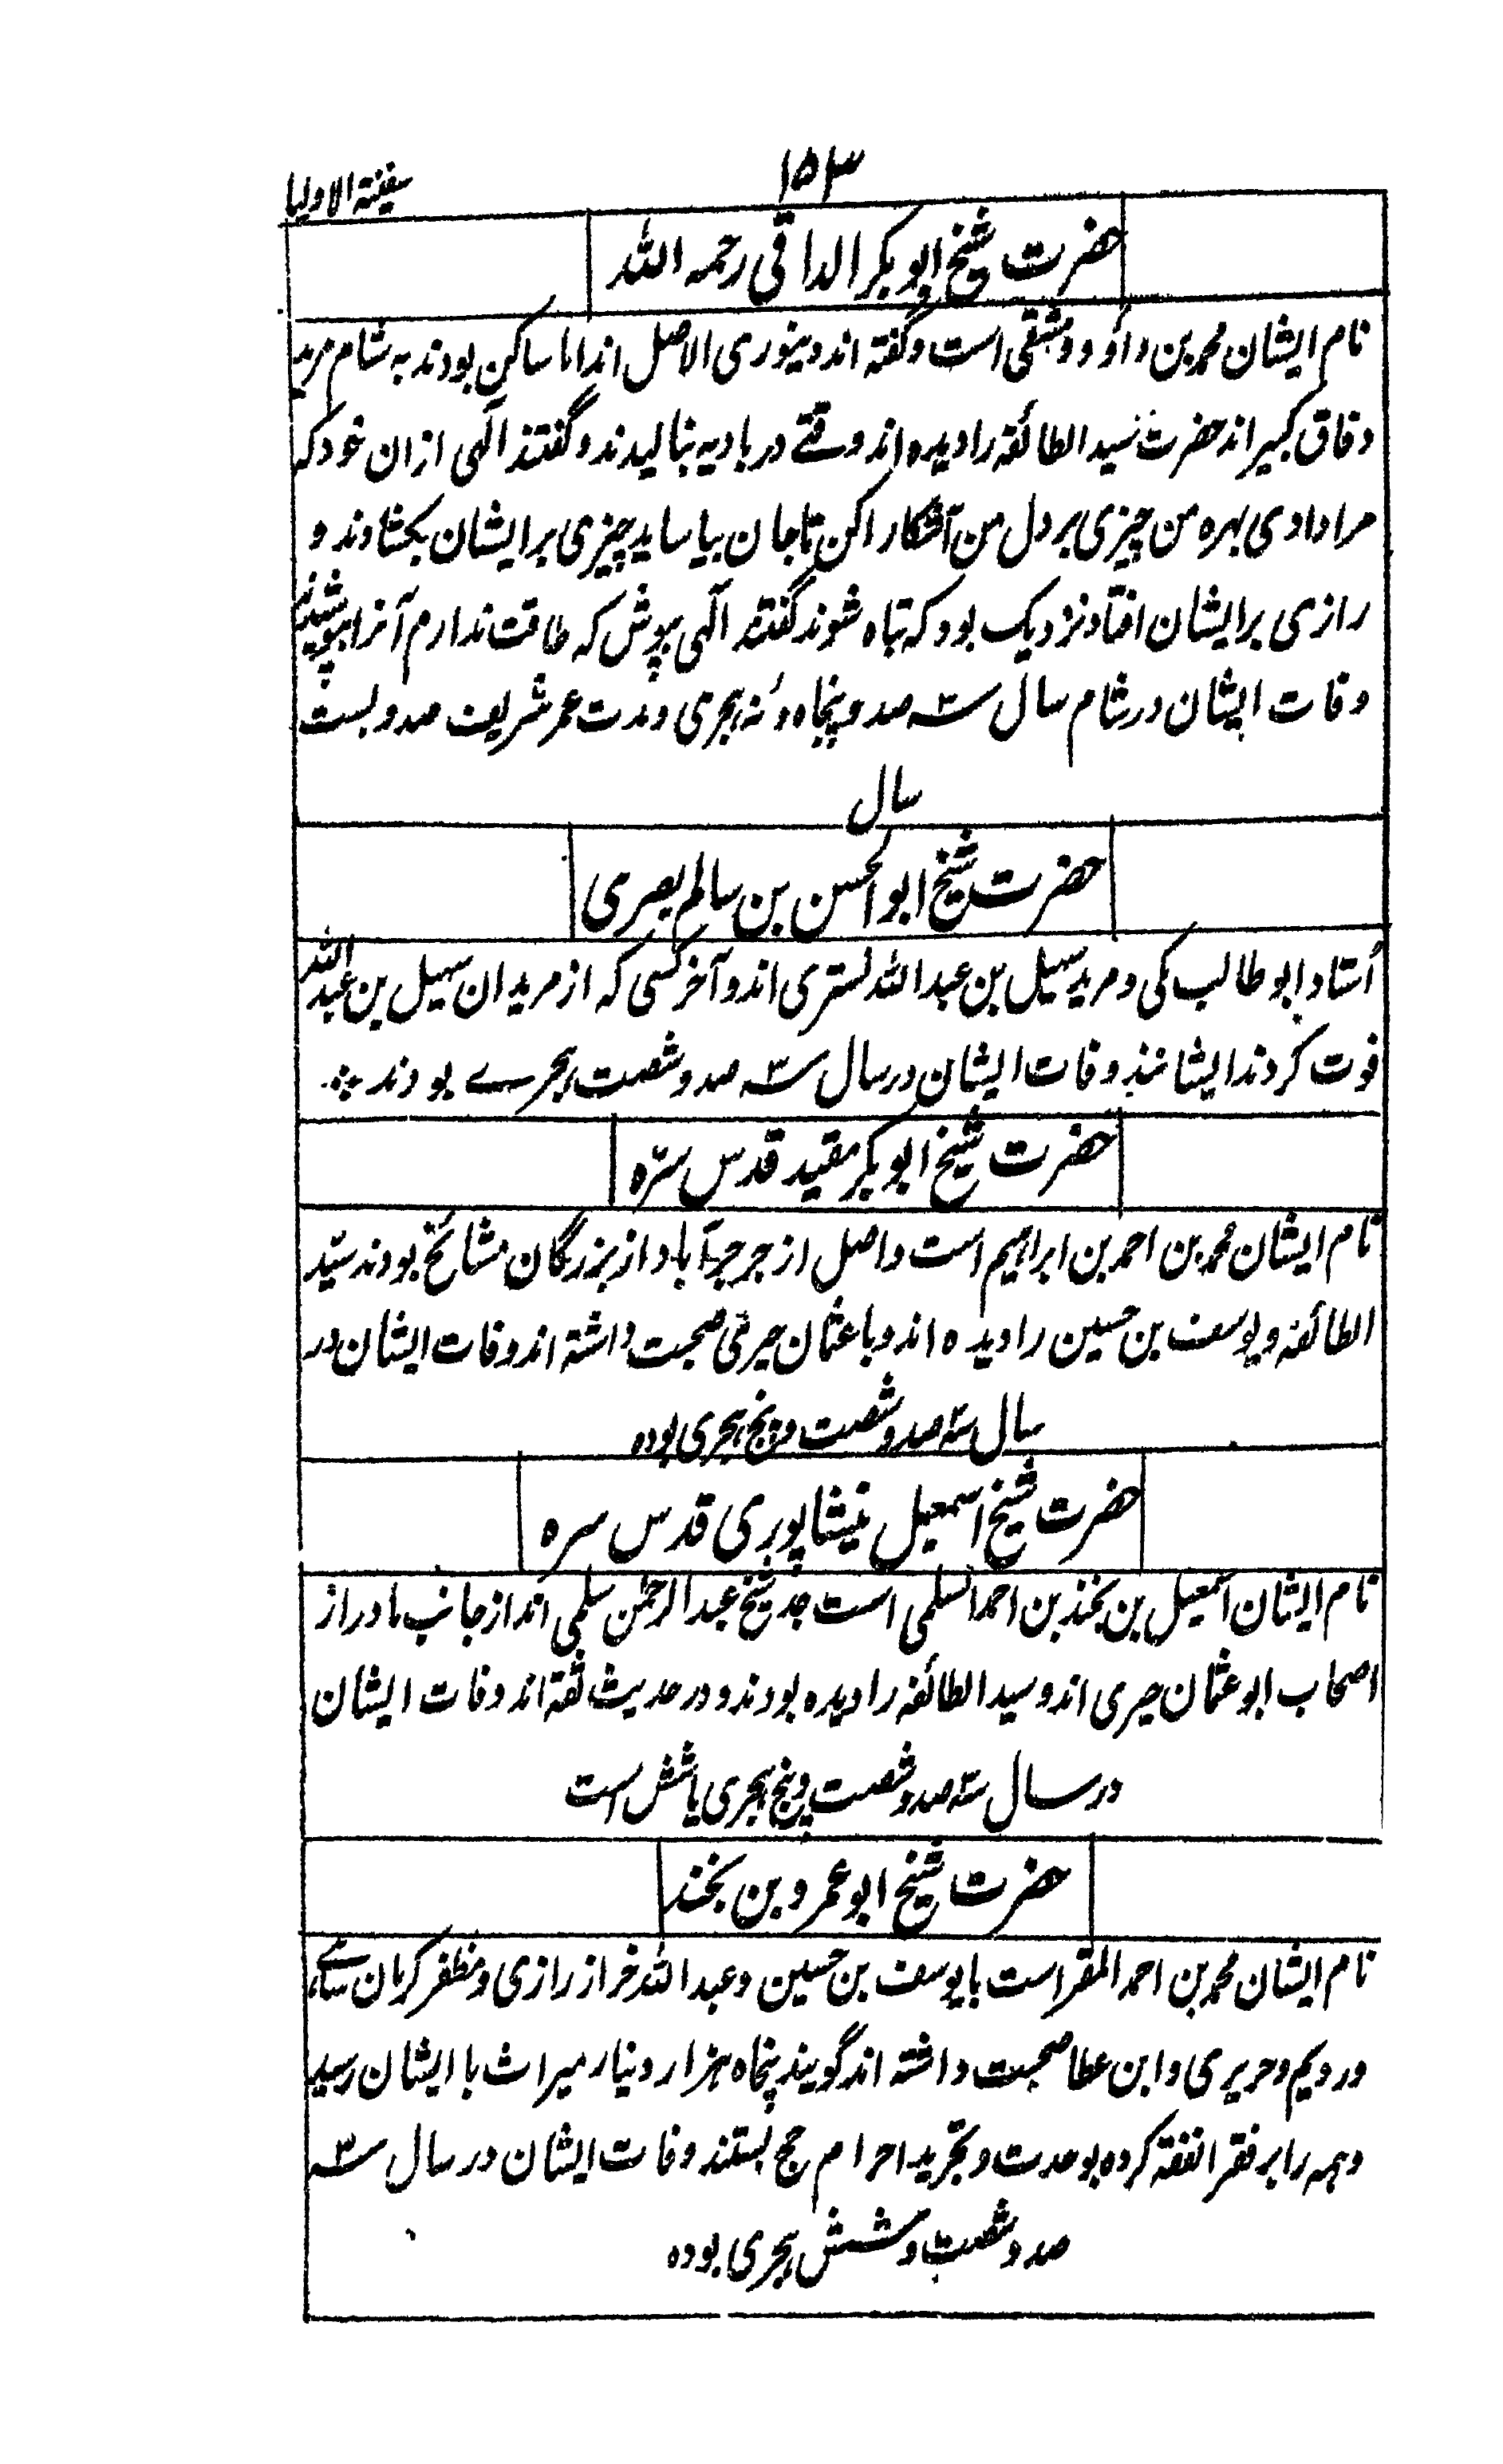 ۱۵۳
سفینة الاولیا
حضرت شیخ ابو بکر الداقی رحمہ اللہ
نام ایشان محمد بن داؤد دمشقی است و گفتہ اند دینوری الاصل اند اما ساکن بودند بہ شام مرید
دقاق کبیر اند حضرت سید الطائفہ را دیدہ اند وقتے در بادیہ بنالیدند و گفتند الٰہی ازان خود کہ
مرا دادی بہرہ من چیزی بر دل من آشکارا کن تا جان بیاساید چیزی بر ایشان بکشادند و
رازی بر ایشان افتاد نزدیک بود کہ تباہ شوند گفتند الٰہی بپوش کہ طاقت ندارم آنرا بپوشیدند
وفات ایشان در شام سال ۳۰۰ صد و پنجاہ و نہ ہجری و مدت عمر شریف صد و بست
سال
حضرت شیخ ابو الحسن بن سالم بصری
اُستاد ابو طالب مکی و مرید سہیل بن عبد اللہ تستری اند و آخر کسی کہ از مریدان سہیل بن عبد اللہ
فوت کردند ایشانند وفات ایشان در سال ۳۰۰ صد و شصت ہجرے بودند
حضرت شیخ ابو بکر مقید قدس سرّہ
نام ایشان محمد بن احمد بن ابراہیم است و اصل از جرجرآباد از بزرگان مشائخ بودند سیّد
الطائفہ و یوسف بن حسین را دیدہ اند و با عثمان حیری صحبت داشتہ اند وفات ایشان در
سال ۳۰۰ صد و شصت و پنج ہجری بودہ
حضرت شیخ اسمعیل نیشاپوری قدس سرہ
نام ایشان اسمعیل بن بخند بن احمد السلمی است جد شیخ عبد الرحمٰن سلمی اند از جانب مادر از
اصحاب ابو عثمان حیری اند و سید الطائفہ را دیدہ بودند و در حدیث ثقہ اند وفات ایشان
در سال ۳۰۰ صد و شصت و پنج ہجری یا شش است
حضرت شیخ ابو عمرو بن بخند
نام ایشان محمد بن احمد المقر است با یوسف بن حسین و عبد اللہ خراز رازی و مظفر کرمان شاہے
و رویم و حریری و ابن عطا صحبت داشتہ اند گویند پنجاہ ہزار دینار میراث با ایشان رسید
و ہمہ را بر فقرا نفقہ کردہ بوحدت و تجرید احرام حج بستند وفات ایشان در سال ۳۰۰
صد و شصت و شش ہجری بودہ